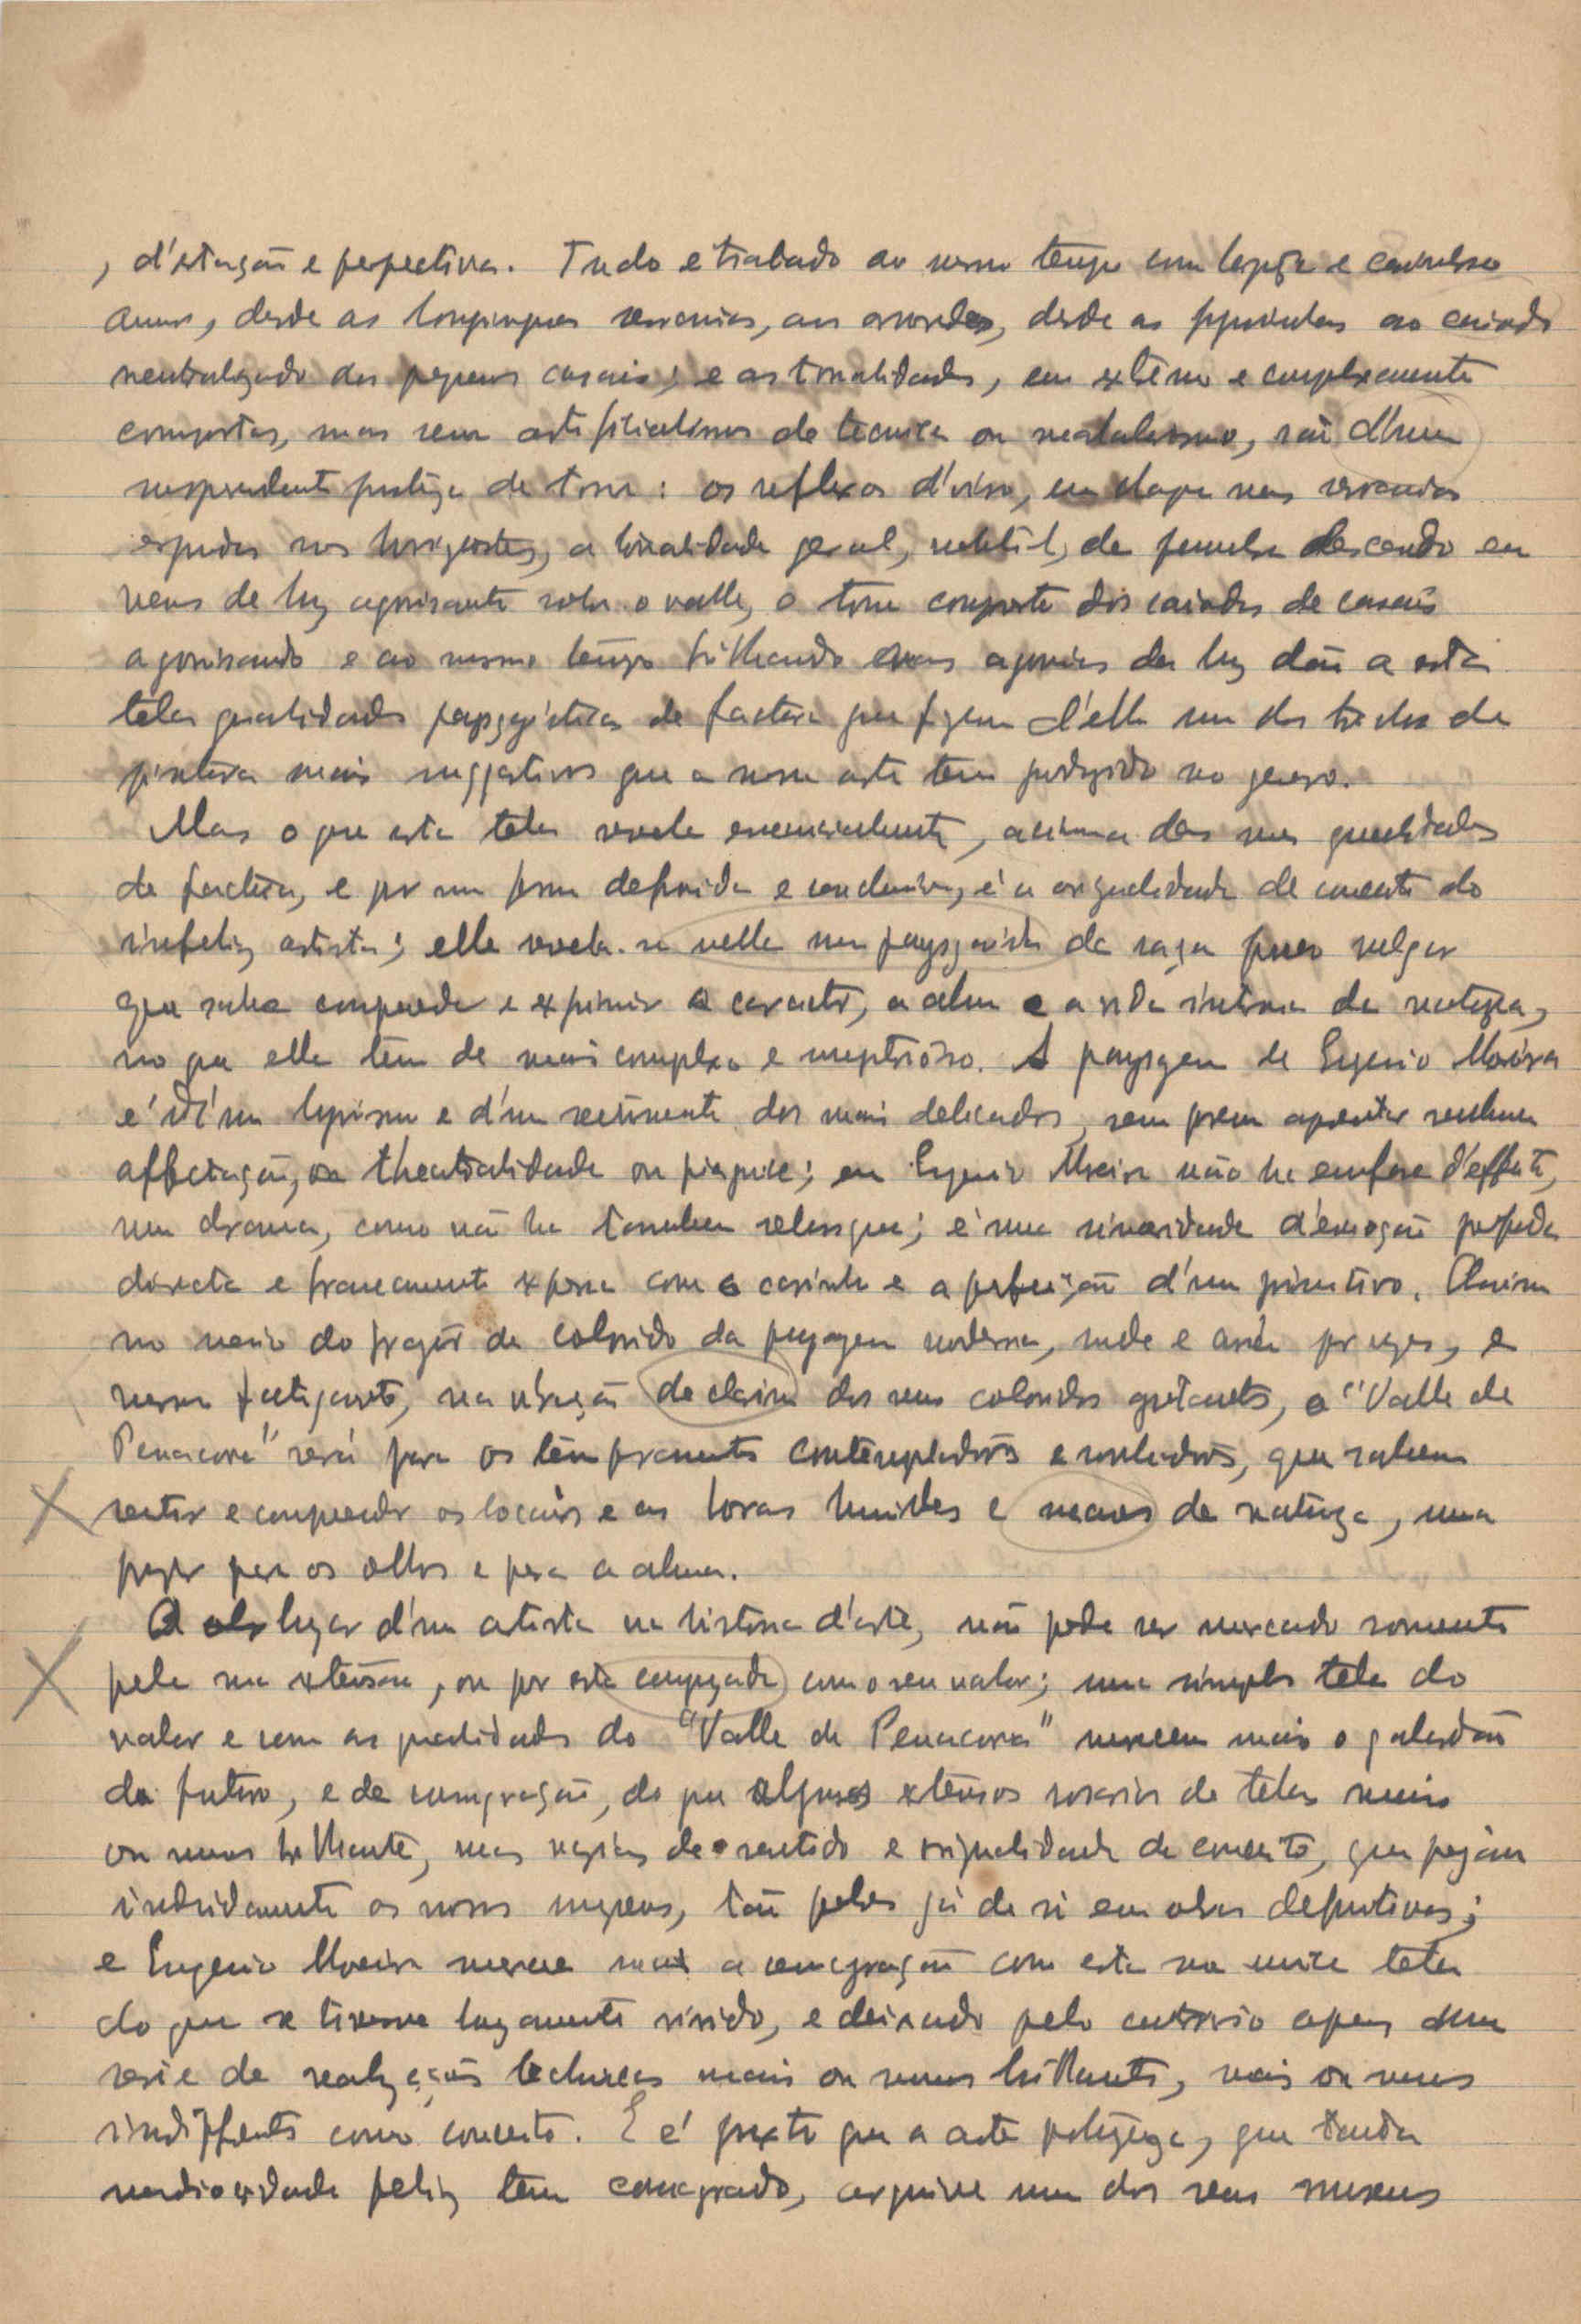 , d'estação e perspectiva. Tudo e tratado ao mesmo tempo com largueza e
amor, desde as longinquas serranias, aos arvoredos, desde as ao caiado
neutralizado dos pequenos casais; e as tonalidades, em extremo e complexamente
compostas, mas sem artificialismos de tecnica ou, são d'huma
surprendente justeza de tom: os reflexos d'ocaso, em chapa nas serranias
erguidas nos horizontes, a tonalidade geral, subtil, de penumbra descendo em
veus de luz agonisante sobre o valle, o tom composto dos caiados de casais
agonisando e ao mesmo tempo brilhando nas agonias da luz dão a esta
tela qualidades paysagisticas de factura que fazem d'ella um dos trechos de
pintura mais suggestivos que a nossa arte tem produzido no genero.
Mas o que esta tela revela essencialmente, acima das suas qualidades
de factura, e por uma forma definida e conclusiva, é a originalidade de conceito do
infeliz artista; elle revela-se nella um paysagista de raça pouco vulgar
que soube comprehender e exprimir o caracter, a alma e a vida interna da natureza,
no que ella tem de mais complexo e mysterioso. A paysagem de Eugenio Moreira
é d'um lyrismo e d'um sentimento dos mais delicados, sem porem apresentar nenhuma
affectação, ou theatralidade ou pieguice; em Eugenio Moreira não ha emfase d'effeito,
nem drama, como não ha tambem; é uma sinceridade d'emoção profunda
directa e francamente expressa com o carinho e a perfeição d'um primitivo. Assim
no meio do fragor de colorido da paysagem moderna, rude e por vezes, e
mesmo fatigante, na vibração de clarim dos seus coloridos gritantes, o "Valle de
Penacova" será para os temperamentos contempladores e sonhadores, que sabem
sentir e comprehender os locais e as horas humildes e da natureza, um
prazer para os olhos e para a alma.
O lugar d'um artista na historia d'arte, não pode ser marcado somente
pela sua extensão, ou por esta conjugada com o seu valor; uma simples tela do
valor e com as qualidades do "Valle de Penacova" merecem mais o galardão
do futuro, e da consagração, do que alguns extensos rosarios de telas mais
ou menos brilhantes, mas vazias de sentido e originalidade de conceito, que pejam
os nossos museus, tão pobres já de si em obras definitivas;
e Eugenio Moreira merece mais a consagração com esta sua unica tela
do que se tivesse largamente vivido, e deixado pelo contrario apenas uma
serie de realizações technicas mais ou menos brilhantes, mais ou menos
indifferentes como conceito. E é justo que a arte portugueza, que tanta
mediocridade feliz tem consagrado, archive num dos seus museus